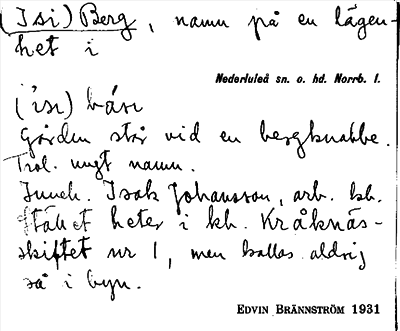 (Isi) Berg, namn på en lägen-
het i
Nederluleå sn. o. hd. Norrb. l.
Gården står vid en bergknabbe.
Trol. ungt namn.
Inneh. Isak Johansson, arb. kb.
Stället heter i kb. Kråknäs-
skiftet nr 1, men kallas aldrig
så i byn.
EDVIN BRÄNNSTRÖM 1931